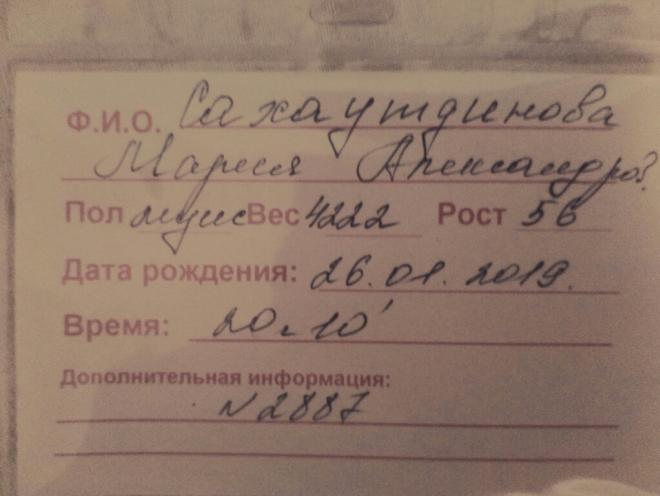 Ф.И.О. Сахаутдинова
Мария Александро?
Пол муж Вес 4222 Рост 56
Дата рождения: 26.01.2019.
Время: 20 ч 10'
Дополнительная информация:
N2887